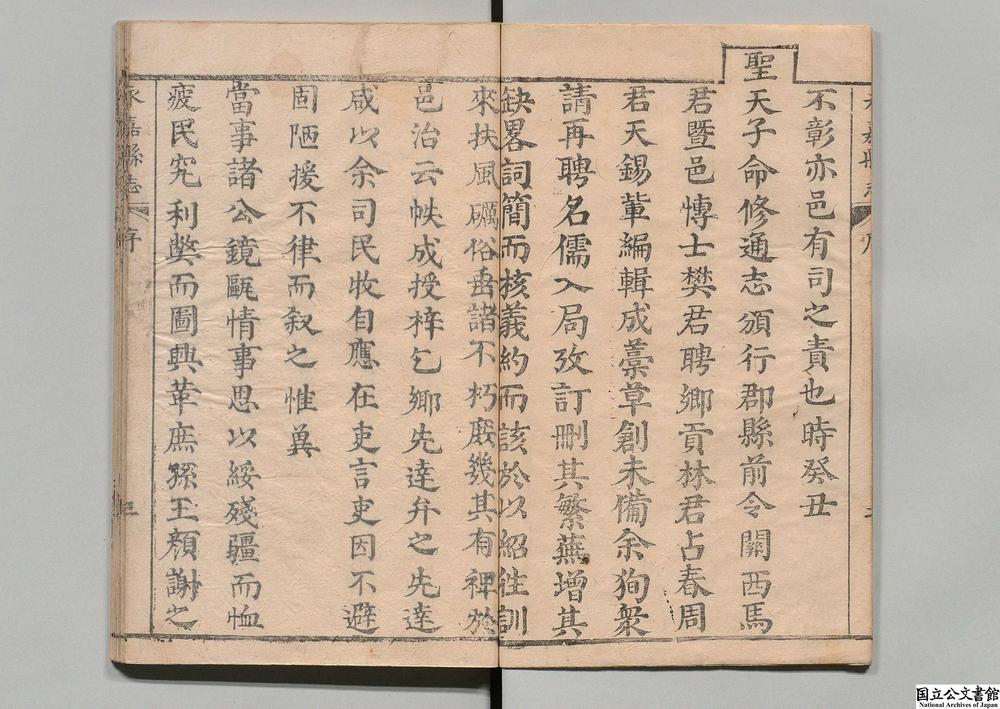 不彰亦邑有司之責也時癸丑
聖天子命修通志頒行郡縣前令關西馬
君暨邑博士樊君聘鄉貢林君占春周
君天錫輩編輯成藁草創未備余狥衆
請再聘名儒入局攷訂刪其繁蕪增其
缺畧詞簡而核義約而該於以紹徃訓
來扶風礪俗垂諸不朽庶幾其有裨於
邑治云帙成授梓乞鄉先達弁之先達
咸以余司民收自應在吏言吏因不避
固陋援不律而叙之惟兾
當事諸公鏡甌情事思以綏殘疆而恤
疲民究利獘而圖興革庶孫王顏謝之
永嘉縣志
序
三
国立公文書館
National Archives of Japan